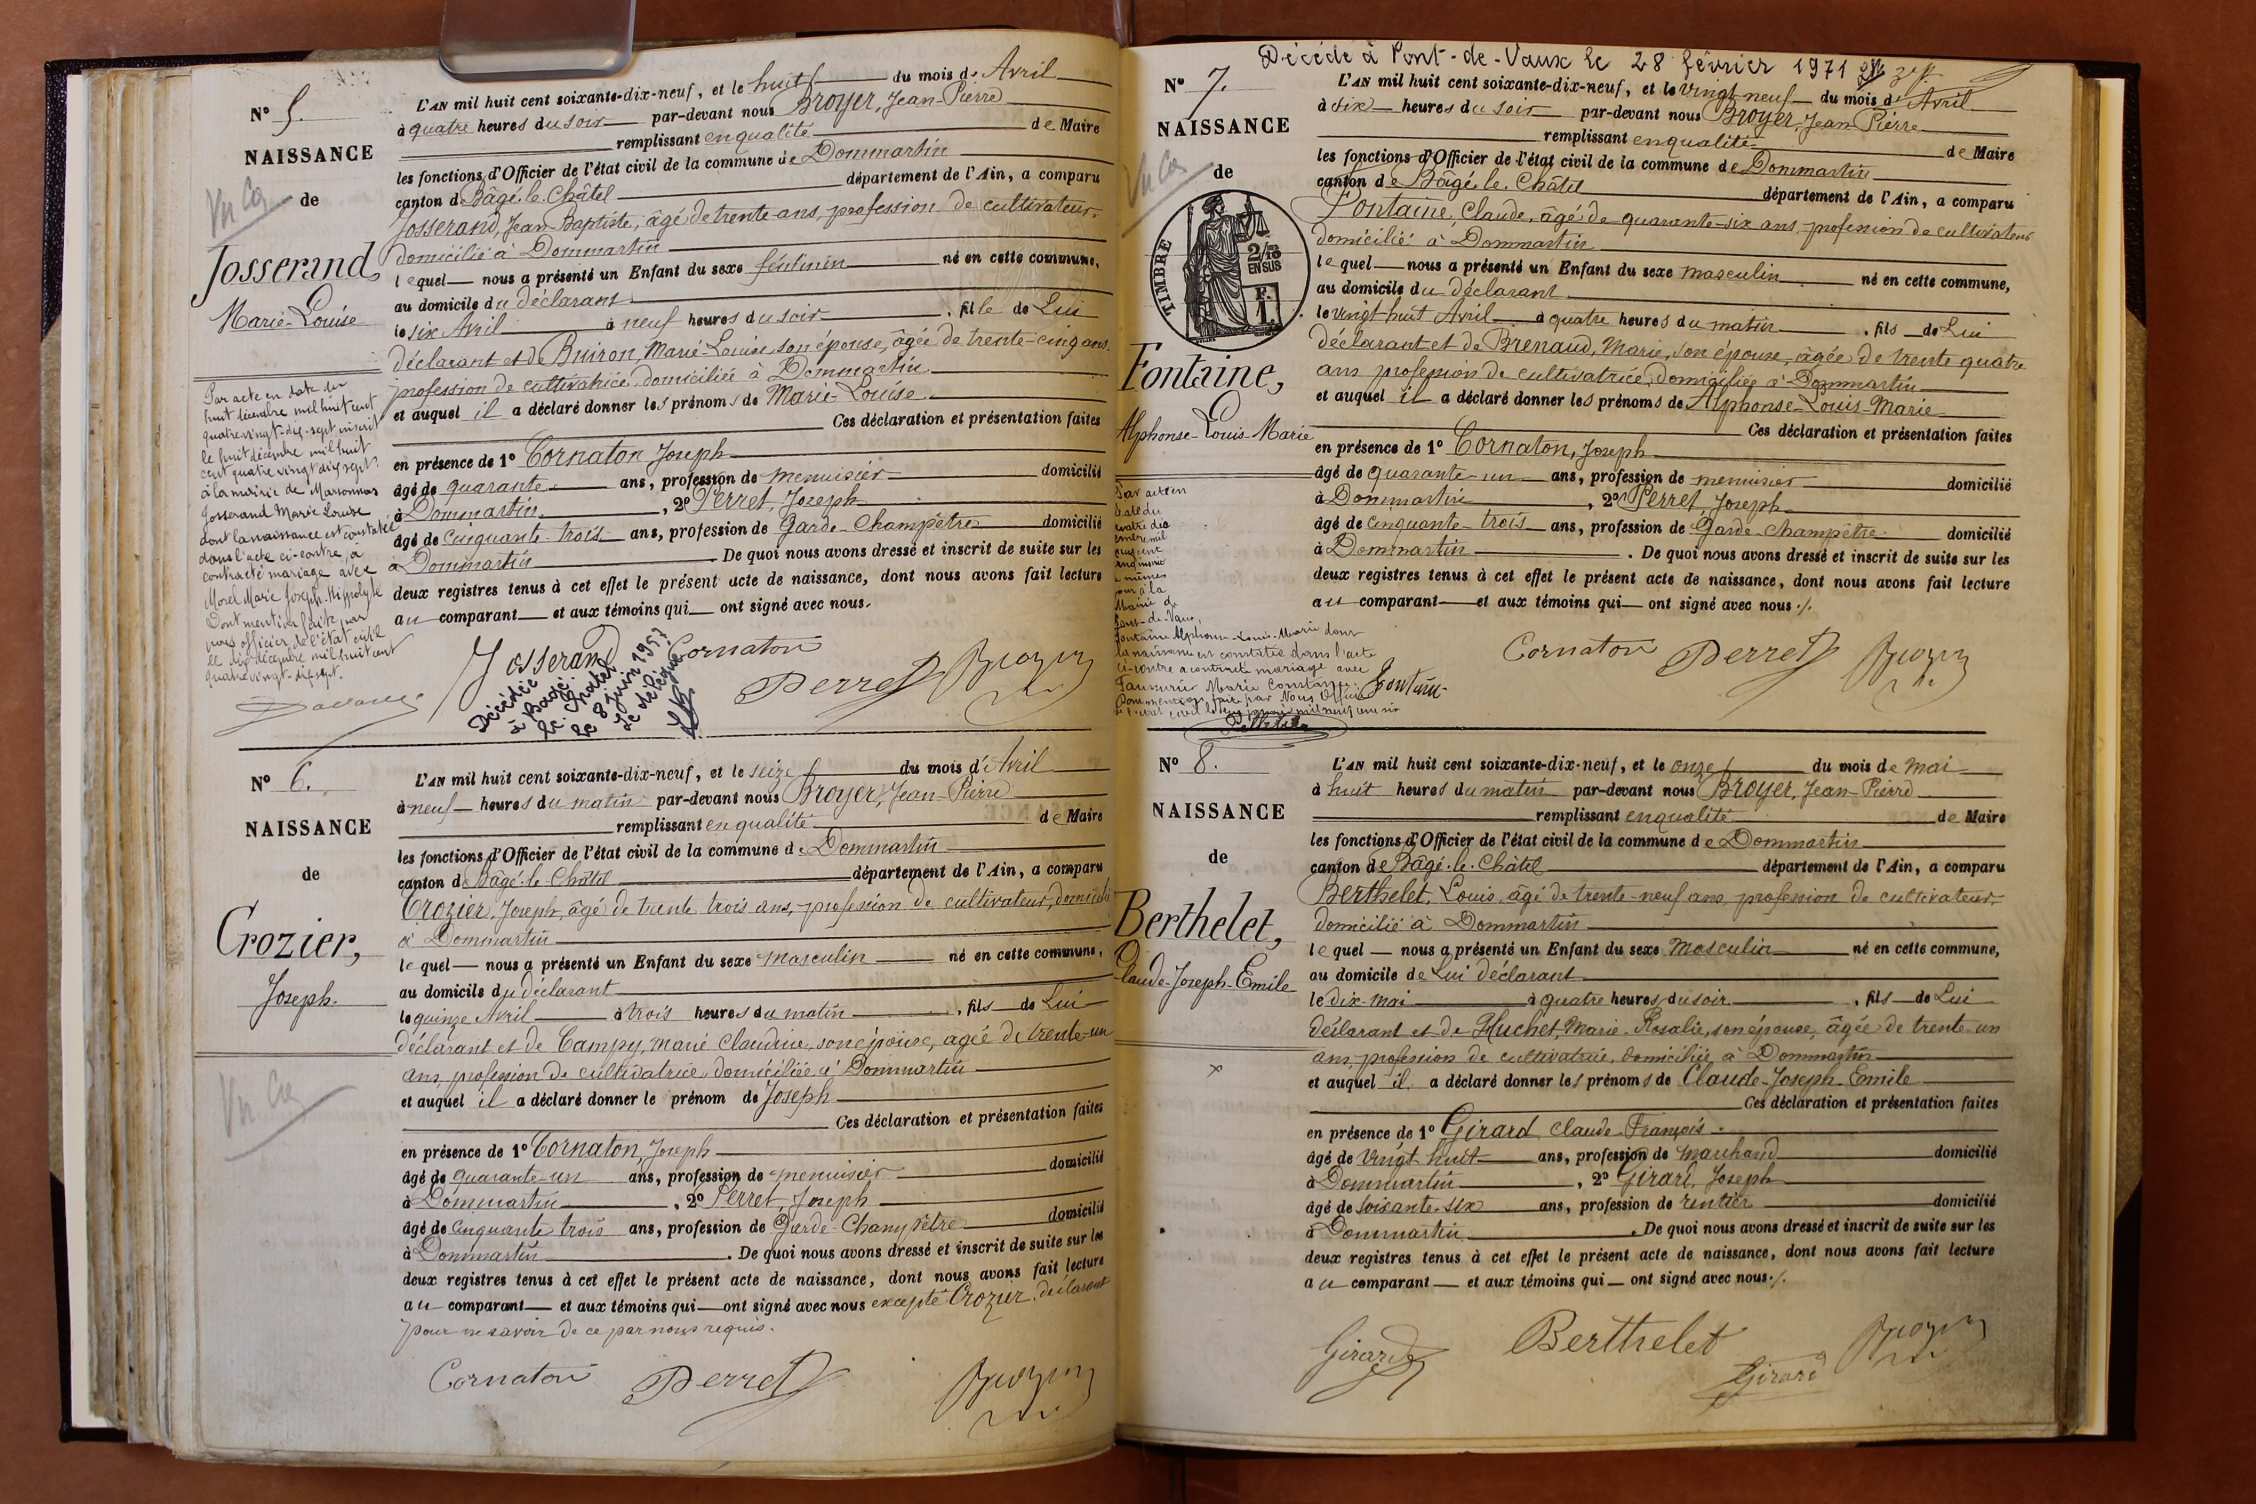 N° 5.
NAISSANCE
de
Vu Ca
Josserand,
Marie-Louise
L'AN mil huit cent soixante-dix-neuf, et le huit du mois d' Avril
à quatre heures du soir par-devant nous Broyer, Jean-Pierre
remplissant en qualité de Maire
les fonctions d'Officier de l'état civil de la commune de Dommartin
canton de Bâgé-le-Châtel département de l'Ain, a comparu
Josserand, Jean-Baptiste, âgé de trente ans, profession de cultivateur,
domicilié à Dommartin
lequel nous a présenté un Enfant du sexe féminin né en cette commune,
au domicile du déclarant
le six Avril à neuf heures du soir, fille de Lui
déclarant et de Buiron, Marie-Louise, son épouse, âgée de trente-cinq ans,
profession de cultivatrice domiciliée à Dommartin
et auquel il a déclaré donner les prénoms de Marie-Louise
Ces déclaration et présentation faites
en présence de 1° Cornaton Joseph
âgé de quarante ans, profession de menuisier domicilié
à Dommartin, 2° Perret, Joseph
âgé de cinquante-trois ans, profession de Garde-Champêtre domicilié
à Dommartin. De quoi nous avons dressé et inscrit de suite sur les
deux registres tenus à cet effet le présent acte de naissance, dont nous avons fait lecture
au comparant et aux témoins qui ont signé avec nous.
Par acte en date du
huit décembre mil huit cent
quatre vingt-dix-sept inscrit
le huit décembre mil huit
cent quatre vingt dix sept
à la mairie de Marsonnas
Josserand Marie Louise
dont la naissance est constatée
dans l'acte ci-contre, a
contracté mariage avec
Morel Marie Joseph-Hippolyte
Dont mention faite par
nous officier de l'état civil
le dix décembre mil huit cent
quatre vingt-dix sept.
Josserand Cornaton
Perret Broyer
Décédée
à Bâgé-
le-Châtel
le 8 juin 1957
Le délégué
N° 6.
NAISSANCE
de
Crozier,
Joseph.
Vu Ca
L'AN mil huit cent soixante-dix-neuf, et le seize du mois d' Avril
à neuf heures du matin par-devant nous Broyer, Jean-Pierre
remplissant en qualité de Maire
les fonctions d'Officier de l'état civil de la commune de Dommartin
canton de Bâgé-le-Châtel département de l'Ain, a comparu
Crozier, Joseph, âgé de trente trois ans, profession de cultivateur, domicilié
à Dommartin
lequel nous a présenté un Enfant du sexe masculin né en cette commune,
au domicile du déclarant
le quinze Avril à trois heures du matin, fils de Lui
déclarant et de Campy, Marie Claudine, son épouse, âgée de trente-un
ans, profession de cultivatrice domiciliée à Dommartin
et auquel il a déclaré donner le prénom de Joseph
Ces déclaration et présentation faites
en présence de 1° Cornaton, Joseph
âgé de quarante-un ans, profession de menuisier domicilié
à Dommartin, 2° Perret, Joseph
âgé de cinquante trois ans, profession de Garde-Champêtre domicilié
à Dommartin. De quoi nous avons dressé et inscrit de suite sur les
deux registres tenus à cet effet le présent acte de naissance, dont nous avons fait lecture
au comparant et aux témoins qui ont signé avec nous excepté Crozier, déclarant
pour ne savoir de ce par nous requis.
Cornaton Perret Broyer
Décédé à Pont-de-Vaux le 28 février 1971
N° 7.
NAISSANCE
de
Vu Ca
TIMBRE
2/10
EN SUS
F.
1.
Fontaine,
Alphonse-Louis-Marie
L'AN mil huit cent soixante-dix-neuf, et le vingt neuf du mois d' Avril
à six heures du soir par-devant nous Broyer, Jean-Pierre
remplissant en qualité de Maire
les fonctions d'Officier de l'état civil de la commune de Dommartin
canton de Bâgé-le-Châtel département de l'Ain, a comparu
Fontaine, Claude, âgé de quarante-six ans, profession de cultivateur
domicilié à Dommartin
lequel nous a présenté un Enfant du sexe masculin né en cette commune,
au domicile du déclarant
le vingt-huit Avril à quatre heures du matin, fils de Lui
déclarant et de Brenaud, Marie, son épouse, âgée de trente quatre
ans profession de cultivatrice, domiciliée à Dommartin
et auquel il a déclaré donner les prénoms de Alphonse-Louis-Marie
Ces déclaration et présentation faites
en présence de 1° Cornaton, Joseph
âgé de quarante-un ans, profession de menuisier domicilié
à Dommartin, 2° Perret, Joseph
âgé de cinquante-trois ans, profession de Garde-Champêtre domicilié
à Dommartin. De quoi nous avons dressé et inscrit de suite sur les
deux registres tenus à cet effet le présent acte de naissance, dont nous avons fait lecture
au comparant et aux témoins qui ont signé avec nous./.
Par acte en
date du
jour à la
Mairie de
Pont-de-Vaux,
Fontaine Alphonse-Louis-Marie dont
la naissance est constatée dans l'acte
ci-contre a contracté mariage avec
Marie Constance
Dont mention faite par Nous Officier
Cornaton Perret Broyer
Fontaine
N° 8.
NAISSANCE
de
Berthelet,
Claude-Joseph-Emile
L'AN mil huit cent soixante-dix-neuf, et le onze du mois de mai
à huit heures du matin par-devant nous Broyer, Jean-Pierre
remplissant en qualité de Maire
les fonctions d'Officier de l'état civil de la commune de Dommartin
canton de Bâgé-le-Châtel département de l'Ain, a comparu
Berthelet, Louis, âgé de trente-neuf ans, profession de cultivateur,
domicilié à Dommartin
lequel nous a présenté un Enfant du sexe masculin né en cette commune,
au domicile de Lui déclarant
le dix-mai à quatre heures du soir, fils de Lui
déclarant et de Huchet, Marie-Rosalie, son épouse, âgée de trente-un
ans, profession de cultivatrice, domiciliée à Dommartin
et auquel il a déclaré donner les prénoms de Claude-Joseph-Emile
Ces déclaration et présentation faites
en présence de 1° Girard Claude-François
âgé de vingt huit ans, profession de marchand domicilié
à Dommartin, 2° Girard, Joseph
âgé de soixante-six ans, profession de rentier domicilié
à Dommartin. De quoi nous avons dressé et inscrit de suite sur les
deux registres tenus à cet effet le présent acte de naissance, dont nous avons fait lecture
au comparant et aux témoins qui ont signé avec nous./.
Girard Berthelet Girard Broyer